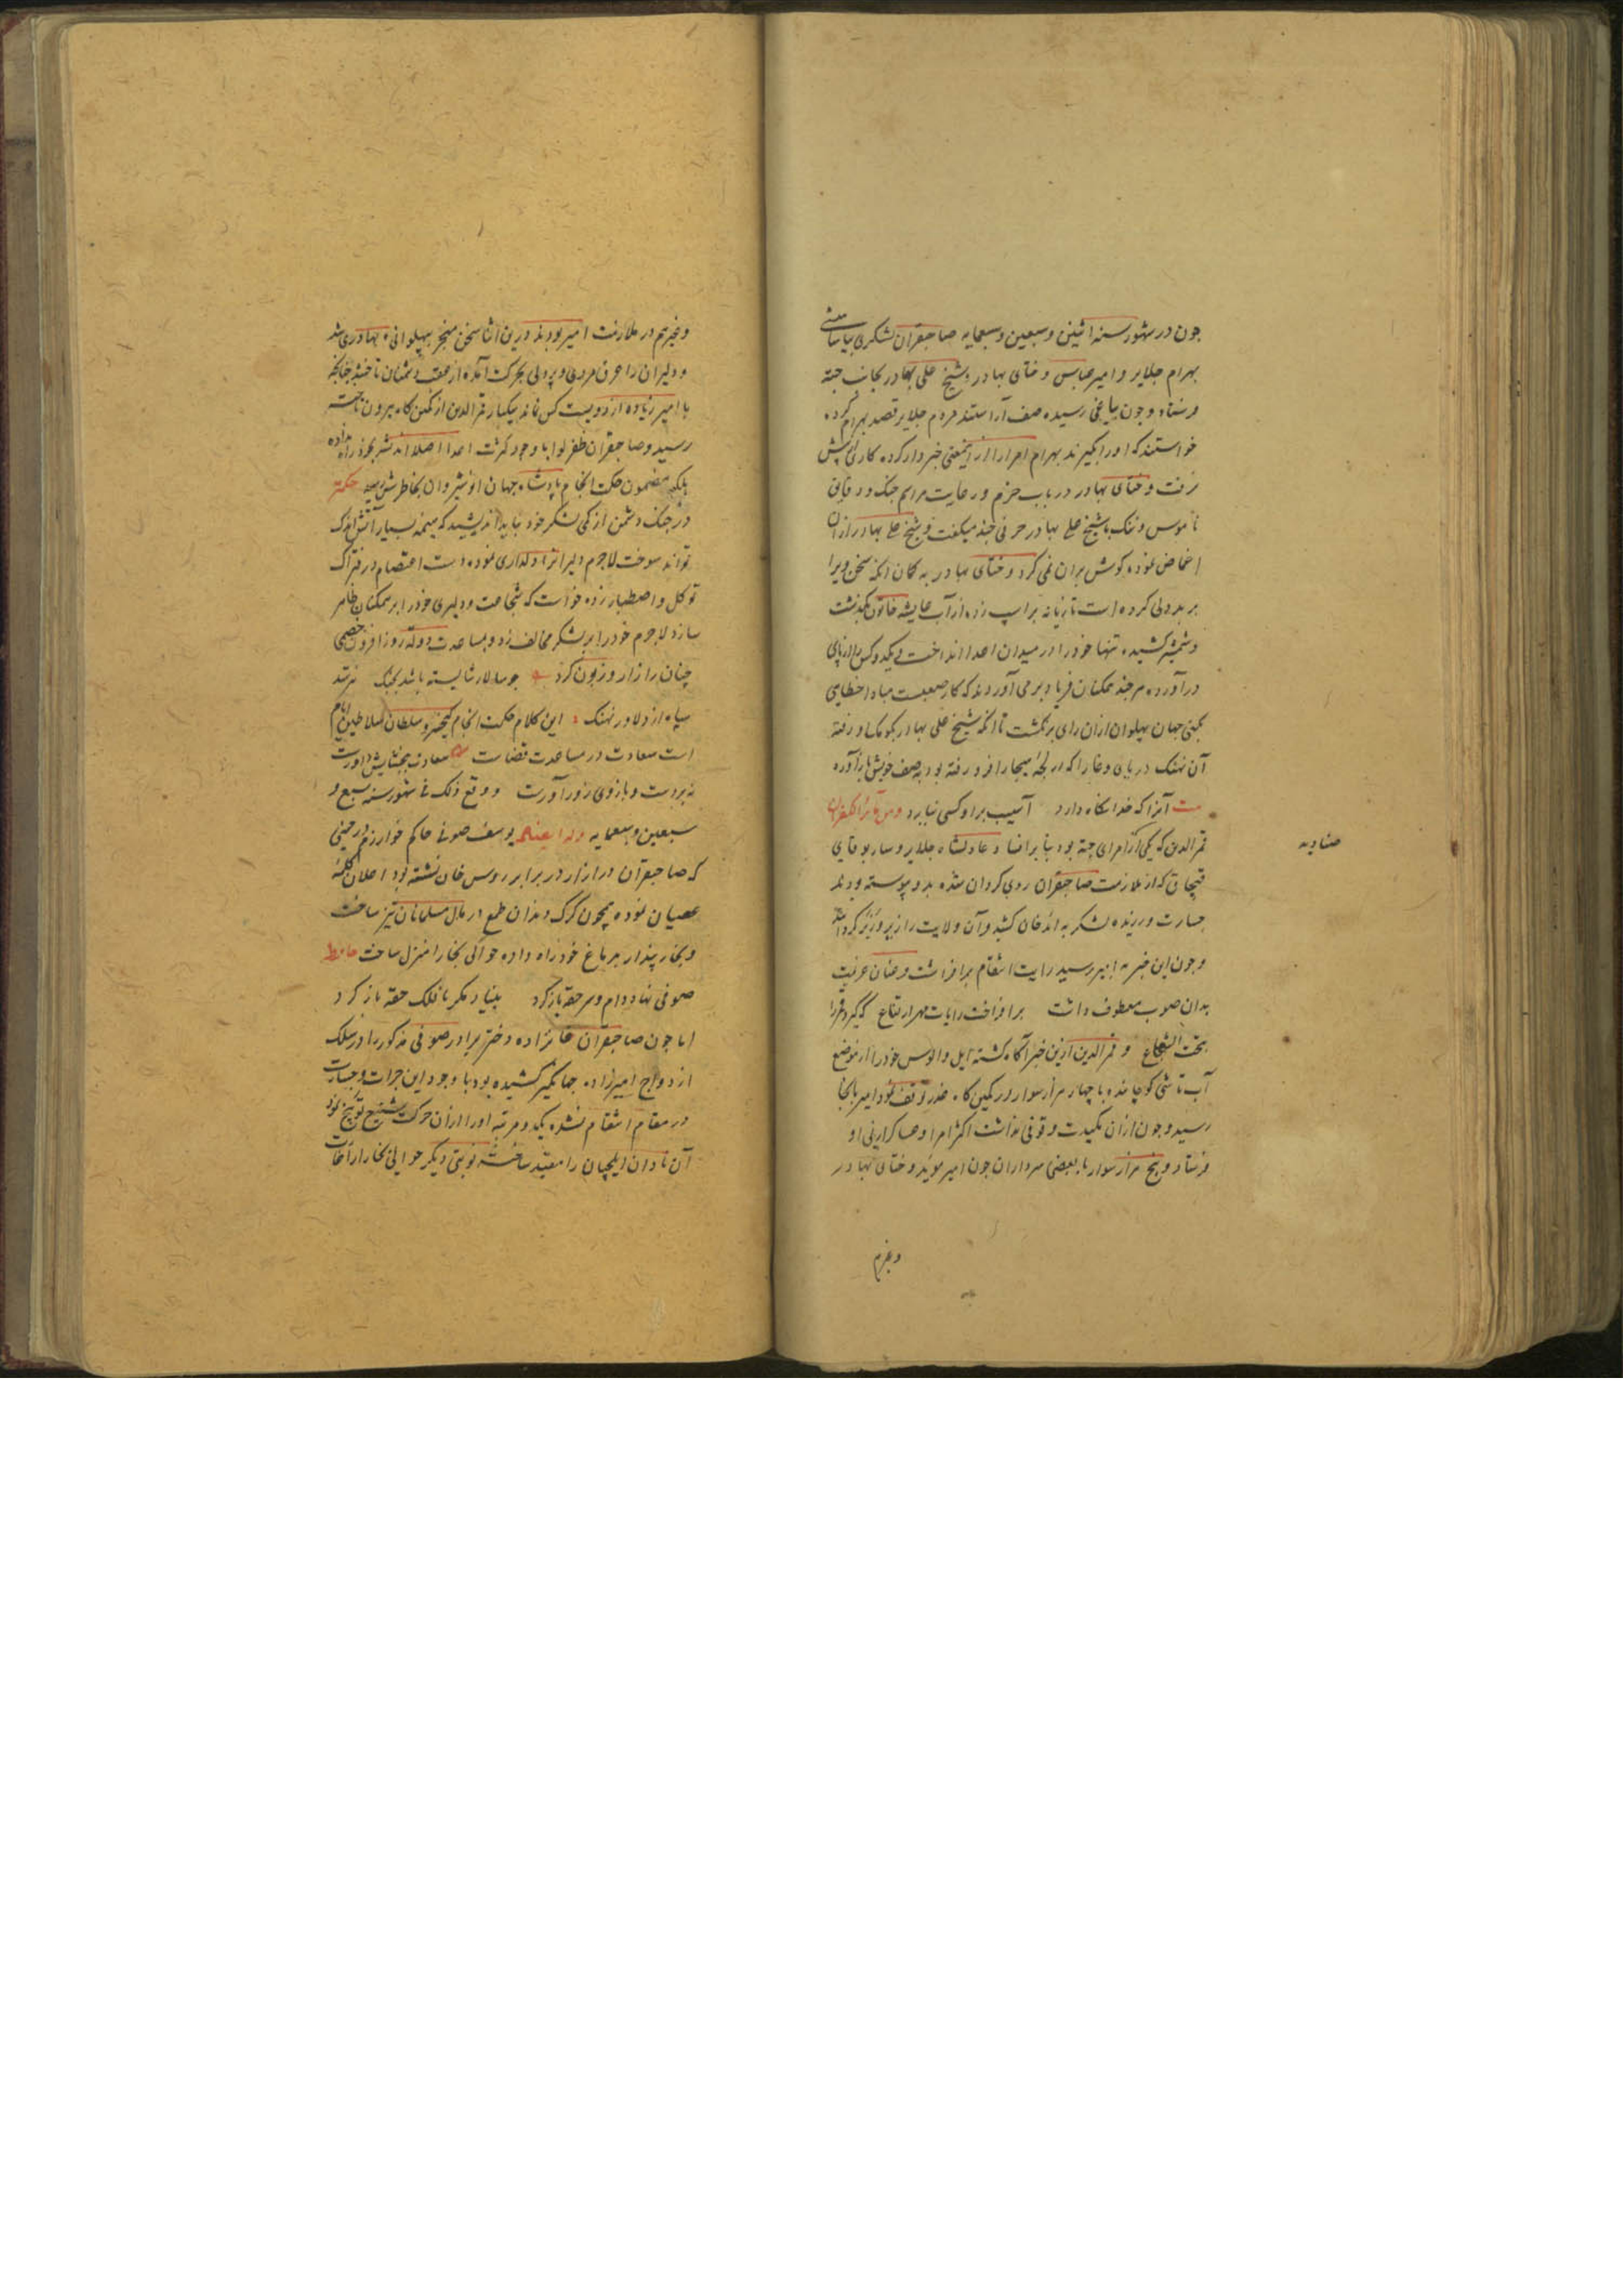 جون در شهور سنه اثنین و سبعین و سبعمایه صاحبقران لشکری بباشا
بهرام جلایر و امیر عباس و ختای بهادر و شیخ علی بهادر بجانب جته
فرستاد و جون بیاغی رسیده صف آراستند مردم جلایر قصد بهرام کرده
خواستند که او را بگیرند بهرام امرا را از اینمعنی خبردار کرده کاری از پیش
نرفت و ختای بهادر در باب حزم و رعایت مراسم جنک و دقایق
ناموس و ننک با شیخ علی بهادر حرفی جند میکفت و شیخ علی بهادر از آن
اغماض نموده کوش بران نمی کرد و ختای بهادر به کمان آنکه سخن ویرا
بر بددلی کرده است تازیانه بر اسپ زده از آب عایشه خاتون بکذشت
و شمشیر کشیده تنها خود را در میدان اعدا انداخت و یکدو کس را از پای
درآورده هر جند همکنان فریاد برمی آوردند که کار صعبست مبادا خطایی
بکنی جهان پهلوان ازان رای برنکشت تا آنکه شیخ علی بهادر بکومک او رفته
آن نهنک دریای وغا را که در لجه هیجا فرو رفته بود بصف خویش باز آورد
بیت آنرا که خدا نکاه دارد آسیب برو کسی نیارد
قمرالدین که یکی از امرای جته بود بنابر افساد عادلشاه جلایر و ساربوغای
قبچاق که از ملازمت صاحبقران روی کردان شده بدو پیوسته بودند
جسارت ورزیده لشکر به اندخان کشید و آن ولایت را زیر و زبر کردانید
و جون این خبر به امیر رسید رایت انتقام برافراشت و عنان عزیمت
بدان صوب معطوف داشت برافراخت رایات مهر ارتفاع که کیرد
بخت الشجاع و قمرالدین ازین خبر آکاه کشته ایل و الوس خود را از موضع
آب تاشی کوجانده با چهار هزار سوار در کمین کاه توقف نمود امیر بآنجا
رسید و جون ازان مکیدت وقوفی نداشت اکثر امرا و عساکر از پی او
فرستاد و پنج هزار سوار با بعضی سرداران جون امیر موید و ختای بهادر
وغیرهم
و غیرهم در ملازمت امیر بودند درین اثنا سخن منجر به پهلوانی و بهادری شد
و دلیران را عرق مردی و پردلی بحرکت آمده از عقب دشمنان تاختند جنانجه
با امیر زیاده از دویست کس نماند بیکبار قمرالدین از کمین کاه بیرون تاخته
رسید و صاحبقران ظفر لوا با وجود کثرت اعدا اصلا اندیشه بخود راه نداده
بلکه مضمون حکمت انجام پادشاه جهان انوشیروان بخاطرش رسید حکمة
در جنک دشمن از کمی لشکر خود نباید اندیشید که هیمه بسیار آتش اندک
تواند سوخت لاجرم دلیرانرا دلداری نموده دست اعتصام در فتراک
توکل و اصطبار زده خواست که شجاعت و دلیری خود را بر همکنان ظاهر
سازد لاجرم خود را بر لشکر مخالف زد و بمساعدت دولت روزافزون خصمی
جنان را زار و زبون کرد جو سالار شایسته باشد بجنک نترسد
سپاه از دلاور نهنک این کلام حکمت انجام کیخسرو سلطان سلاطین ایام
است سعادت در مساعدت قضاست سعادت ببخشایش داورست
نه بر دست و بازوی زورآورست و وقع ذلک فی شهور سنه سبع و
سبعین و سبعمایه وله ایضا یوسف صوفی حاکم خوارزم در حینی
که صاحبقران در اترار در برابر روس خان نشسته بود اعلان کلمه
عصیان نموده همجون کرک دندان طمع در مال مسلمانان تیز ساخت
و بخار پندار به دماغ خود راه داده حوالی بخارا منزل ساخت حافظ
صوفی نهاد دام و سر حقه باز کرد بنیاد مکر با فلک حقه باز کرد
اما جون صاحبقران خانزاده دختر برادر صوفی مذکور را در سلک
ازدواج امیرزاده جهانکیر کشیده بود با وجود این جرات و جسارت
در مقام انتقام نشده یکدو مرتبه او را ازان حرکت شنیع توبیخ نمود
آن نادان ایلچیان را مقید ساخت نوبتی دیکر حوالی بخارا را تاخت